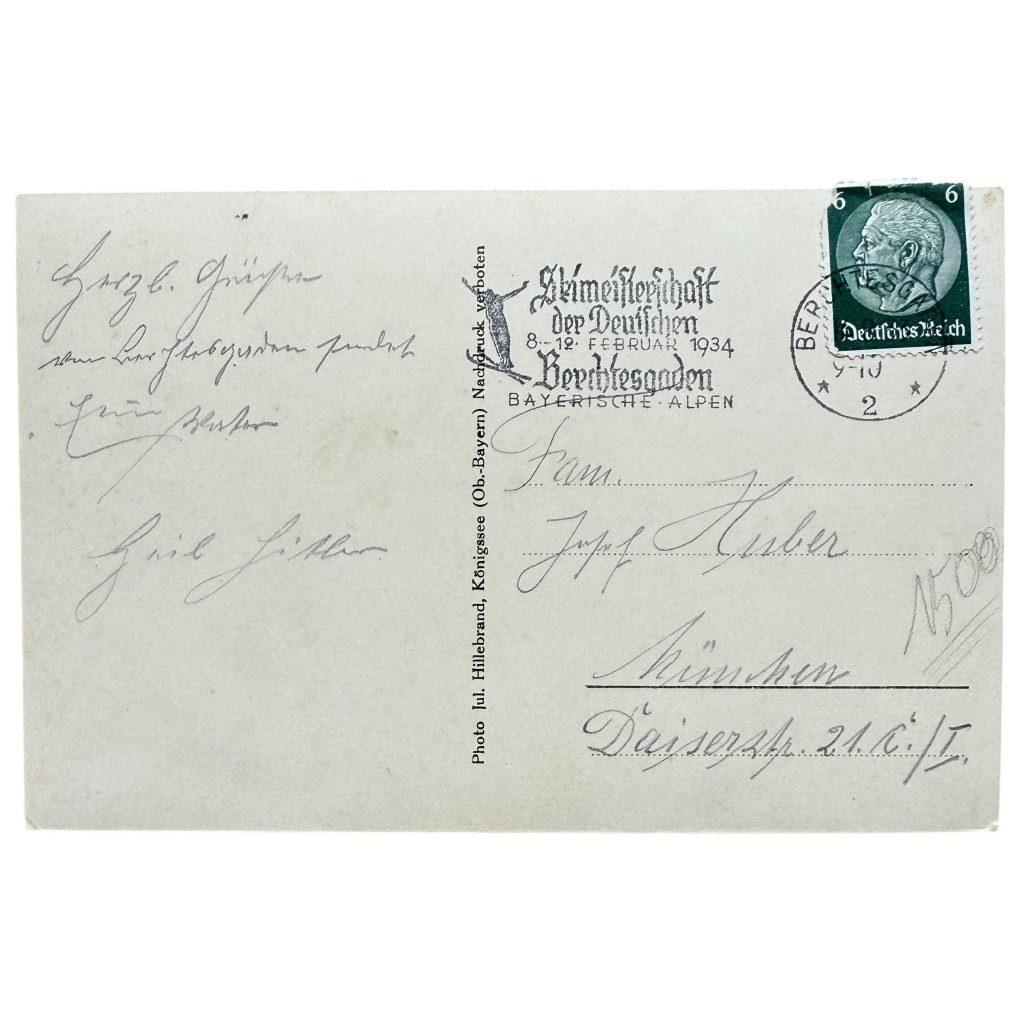 Herzl. Grüße
von Berchtesgaden sendet
Euer Vater
Heil Hitler
Photo Jul. Hillebrand, Königssee (Ob.-Bayern) Nachdruck verboten
Skimeisterschaft
der Deutschen
8-12. FEBRUAR 1934
Berchtesgaden
BAYERISCHE · ALPEN
6 6
Deutsches Reich
BERCHTESGA
9-10
2
Fam.
Josef Huber
München
Daiserstr. 21. /I.